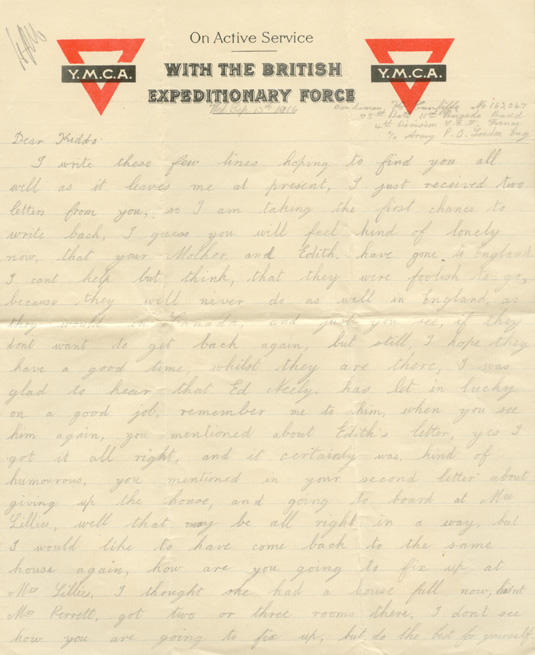 On Active Service
Y.M.C.A.
WITH THE BRITISH
Y.M.C.A.
EXPEDITIONARY FORCE
Sep 13th 1916
Bandsman, No 163067
75th Batt 11th Brigade Band
4th Division B.E.F. France
c/o Army P.O. London Eng
Dear Kiddo
I write these few lines hoping to find you all
well as it leaves me at present, I just received two
letters from you, so I am taking the first chance to
write back, I guess you will feel kind of lonely
now, that your Mother, and Edith, have gone to England
I cant help but think, that they were foolish to go,
because they will never do as well in England, as
they would in Canada, and just you see, if they
dont want to get back again, but still I hope they
have a good time, whilst they are there, I was
glad to hear that Ed Neely. has let in lucky
on a good job, remember me to him, when you see
him again, you mentioned about Edith's letter, yes I
got it all right, and it certainly was, kind of
humourous, you mentioned in your second letter about
giving up the house, and going to board at Mrs
Lillies, well that may be all right in a way, but
I would like to have come back to the same
house again, how are you going to fix up at
Mrs Lillies, I thought she had a house full now, hasnt
Mrs Perrett, got two or three rooms there, I dont see
how you are going to fix up, but do the best for yourself